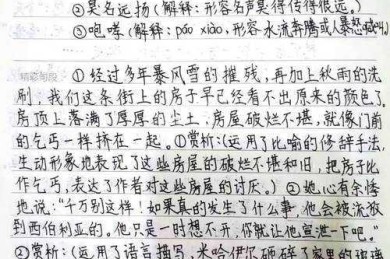 ②臭名远扬(解释:形容名声臭得传得很远。)
③咆哮(解释:páo xiào,形容水流奔腾或人暴怒喊叫)
①经过多年暴风雪的摧残,再加上秋雨的洗
刷,我们这条街上的房子早已经看不出原来的颜色了,
房顶上落满了厚厚的尘土,房屋破烂不堪,就像门前
的乞丐一样挤在一起。①赏析:(运用了比喻的修辞手法,
生动形象地表现了这些房屋的破烂不堪和旧,把房子比
作乞丐,表达了作者对这些房屋的讨厌。)②她心有余悸
地说:“千万别这样!如果真的发生了什么事,他会被流放
到西伯利亚的。他只是一时想不开,你就让他宣泄一下吧。”
②赏析:(运用了语言描写,米哈伊尔砸碎了家里的玻璃